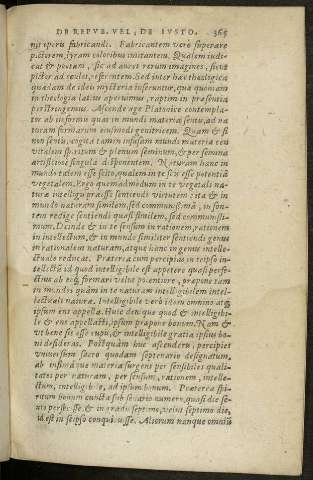 DE REPVB. VEL, DE IVSTO. 365
operis fabricandi. Fabricantem verò superare
pictorem, formam coloribus imitantem. Qualem iudi-
cat & poetam, sic ad auris rerum imagines, sicut
pictor ad oculos, referentem. Sed inter hæc theologica
quædam de ideis mysteria inseruntur, quæ quoniam
in theologia latius aperuimus, raptim in præsentia
perstringemus. Ascende ergo Platonice contempla-
tor ab informi quasi in mundi materia sensu, ad na-
turam formarum eiusmodi genitricem. Quam & si
non sentis, cogita tamen infusam mundi materiæ ceu
vitalem spiritum & plenum seminum, & per semina
artificiose singula disponentem. Naturam hanc in
mundo talem esse scito, qualem in te scis esse potentiā
vegetalem. Ergo quemadmodum in te vegetali na-
turæ intelligis præesse sentiendi virtutem: ita & in
mundo naturam similem, sed communissimā, in fon-
tem redige sentiendi quasi similem, sed communissi-
mum. Deinde & in te sensum in rationem, rationem
in intellectum, & in mundo similiter sentiendi genus
in rationalem naturam, atque hanc in genus intelle-
ctuale reducat. Præterea cum percipias in teipso in-
tellectū id quod intelligibile est appetere quasi perfe-
ctius ab eoque formari velut potentiore, propone tam
in mundi quàm in te naturam intelligibilem intel-
lectuali naturæ. Intelligibile verò idem omnino atque
ipsum ens appella. Huic denique quod & intelligibi-
le & ens appellasti, ipsum præpone bonum. Nam &
vt bene sit esse cupis, & intelligibile gratia ipsius bo-
ni desideras. Postquàm huc ascenderis, percipies
vniuersum sacro quodam septenario designatum,
ab infima quæ materia surgens per sensibiles quali-
tates per naturam, per sensum, rationem, intelle-
ctum, intelligibile, ad ipsum bonum. Præterea spi-
ritum bonum cuncta sub senario numero, quasi die se-
xto perfecisse, & in gradu septimo, velut septimo die,
id est in seipso conquieuisse. Aliorum nanque omniū